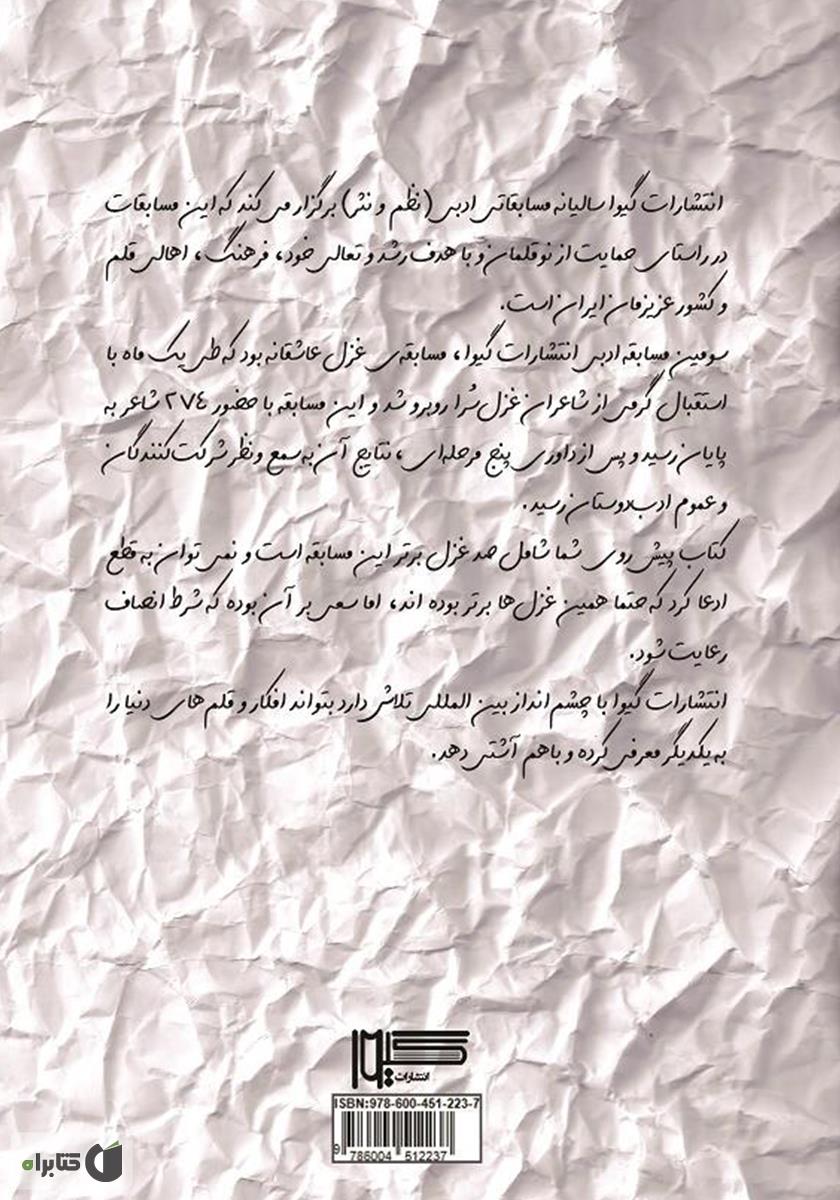 انتشارات گیوا سالیانه مسابقاتی ادبی (نظم و نثر) برگزار می کند که این مسابقات
در راستای حمایت از نوقلمان و با هدف رشد و تعالی خود، فرهنگ، اهالی قلم
و کشور عزیزمان ایران است.
سومین مسابقه ادبی انتشارات گیوا، مسابقه‌ی غزل عاشقانه بود که طی یک ماه با
استقبال گرمی از شاعران غزل سُرا روبرو شد و این مسابقه با حضور ۲۷٤ شاعر به
پایان رسید و پس از داوری پنج مرحله‌ای، نتایج آن به سمع و نظر شرکت‌کنندگان
و عموم ادب‌دوستان رسید.
کتاب پیش روی شما شامل صد غزل برتر این مسابقه است و نمی توان به قطع
ادعا کرد که حتما همین غزل‌ها برتر بوده اند، اما سعی بر آن بوده که شرط انصاف
رعایت شود.
انتشارات گیوا با چشم انداز بین المللی تلاش دارد بتواند افکار و قلم های دنیا را
به یکدیگر معرفی کرده و باهم آشتی دهد.
گیوا
انتشارات
ISBN:978-600-451-223-7
9 786004 512237
کتابراه